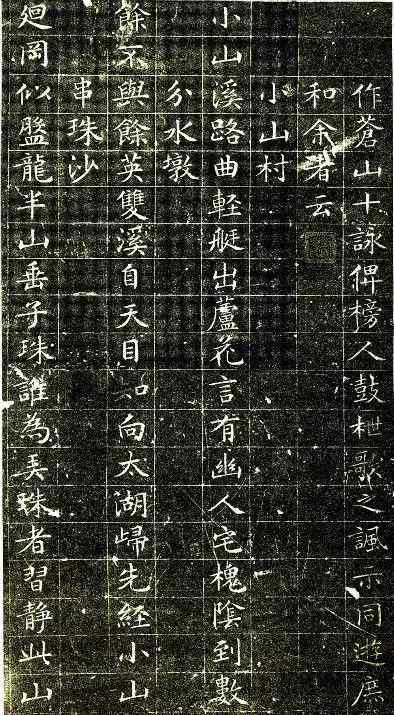 作蒼山十詠俾榜人鼓枻歌之諷示同遊庶
和余者云
小山村
小山溪路曲輕艇出蘆花言有幽人宅槐陰到數
分水墩
餘不與餘英雙溪自天目如向太湖歸先經小山
串珠沙
廻岡似盤龍半山垂子珠誰為弄珠者習靜此山